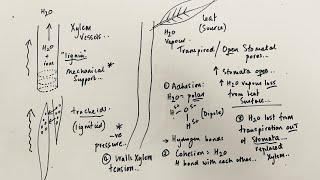 H₂O
Xylem
Vessels..
H₂O
+
ions
"lignin"
mechanical
support..
tracheids
(lignified)
*
-ve
pressure..
⑥ Walls Xylem
tension...
leaf
(Source)
H₂O
Vapour..
Transpired/Open Stomatal
pores...
↑ Stomata open...
↑ H₂O vapour loss
from leaf
surface...
① Adhesion:
H₂O = polar
(Dipole)
→ Hydrogen bonds
② Cohesion = H₂O
H bond with each other..
⑧ H₂O lost from
transpiration out of
stomata
replaced
Xylem..